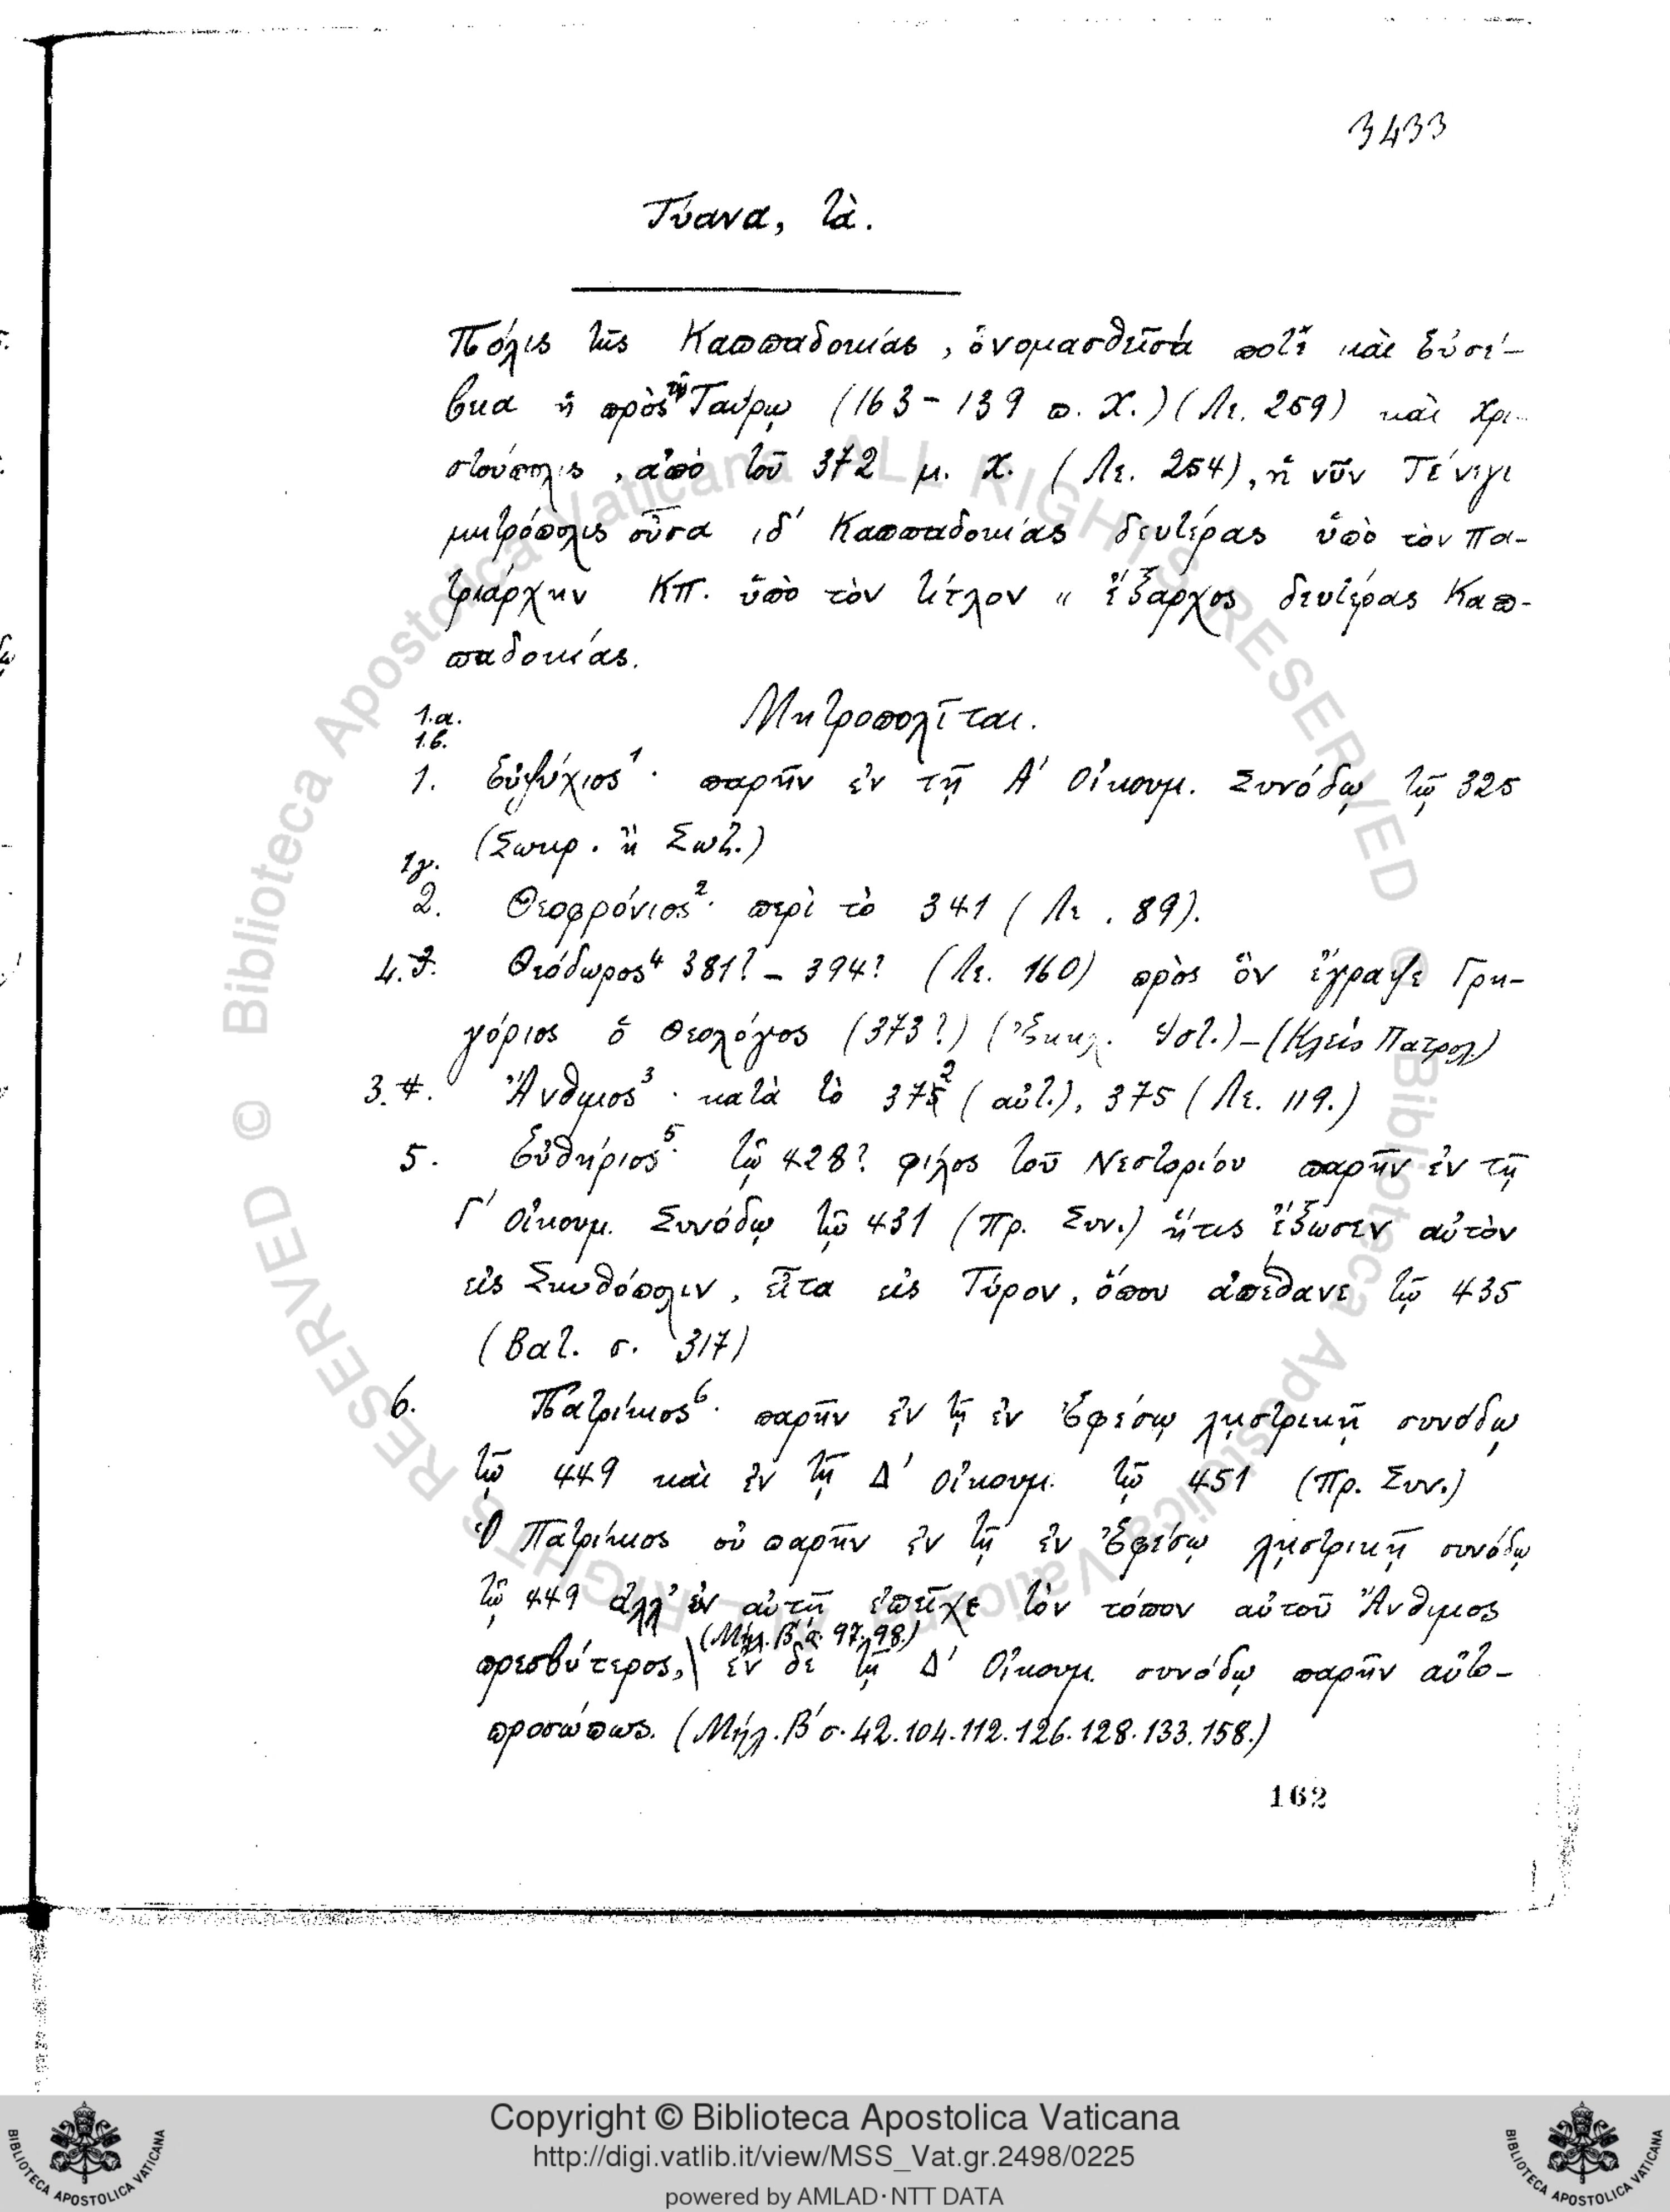 3433
Τύανα, τὰ.
Πόλις τῆς Καππαδοκίας, ὀνομασθεῖσά ποτε καὶ Εὐσέ-
βεια ἡ πρὸς τῷ Ταύρῳ (163-139 π. Χ.) (Λε. 259) καὶ Χρι-
στούπολις, ἀπὸ τοῦ 372 μ. Χ. (Λε. 254), ἡ νῦν Τένιγι
μητρόπολις οὖσα ιδ' Καππαδοκίας δευτέρας ὑπὸ τὸν Πα-
τριάρχην ΚΠ. ὑπὸ τὸν τίτλον " ἔξαρχος δευτέρας Καπ-
παδοκίας.
Μητροπολῖται.
1.α.
1.β.
1. Εὐψύχιος¹· παρῆν ἐν τῇ Α' Οἰκουμ. Συνόδῳ τῷ 325
(Σωκρ. ἢ Σωζ.)
1γ.
2. Θεοφρόνιος²· περὶ τὸ 341 (Λε. 89).
4. 3. Θεόδωρος⁴ 381? - 394? (Λε. 160) πρὸς ὃν ἔγραψε Γρη-
γόριος ὁ Θεολόγος (373?) (Ἐκκλ. Ἱστ.) - (Κλείς Πατρολ)
3. 4. Ἄνθιμος³· κατὰ τὸ 372 (αὐτ.), 375 (Λε. 119.)
5. Εὐθήριος⁵· τῷ 428? φίλος τοῦ Νεστορίου παρῆν ἐν τῇ
Γ' Οἰκουμ. Συνόδῳ τῷ 431 (Πρ. Συν.) ἥτις ἔξωσεν αὐτὸν
εἰς Σκυθόπολιν, εἶτα εἰς Τύρον, ὅπου ἀπέθανε τῷ 435
(Βατ. σ. 317)
6. Πατρίκιος⁶· παρῆν ἐν τῇ ἐν Ἐφέσῳ λῃστρικῇ συνόδῳ
τῷ 449 καὶ ἐν τῇ Δ' Οἰκουμ. τῷ 451 (Πρ. Συν.)
Ὁ Πατρίκιος οὐ παρῆν ἐν τῇ ἐν Ἐφέσῳ λῃστρικῇ συνόδῳ
τῷ 449 ἀλλ' ἐν αὐτῇ ἐπεῖχε τὸν τόπον αὐτοῦ Ἄνθιμος
(Μήλ. Β' σ. 97. 98.)
πρεσβύτερος, ἐν δὲ τῇ Δ' Οἰκουμ. συνόδῳ παρῆν αὐτο-
προσώπως. (Μήλ. Β' σ. 42.104.112.126.128.133.158.)
162
© Biblioteca Apostolica Vaticana ALL RIGHTS RESERVED
© Biblioteca Apostolica Vaticana ALL RIGHTS RESERVED
Copyright © Biblioteca Apostolica Vaticana
http://digi.vatlib.it/view/MSS_Vat.gr.2498/0225
powered by AMLAD·NTT DATA
BIBLIOTECA APOSTOLICA VATICANA
BIBLIOTECA APOSTOLICA VATICANA